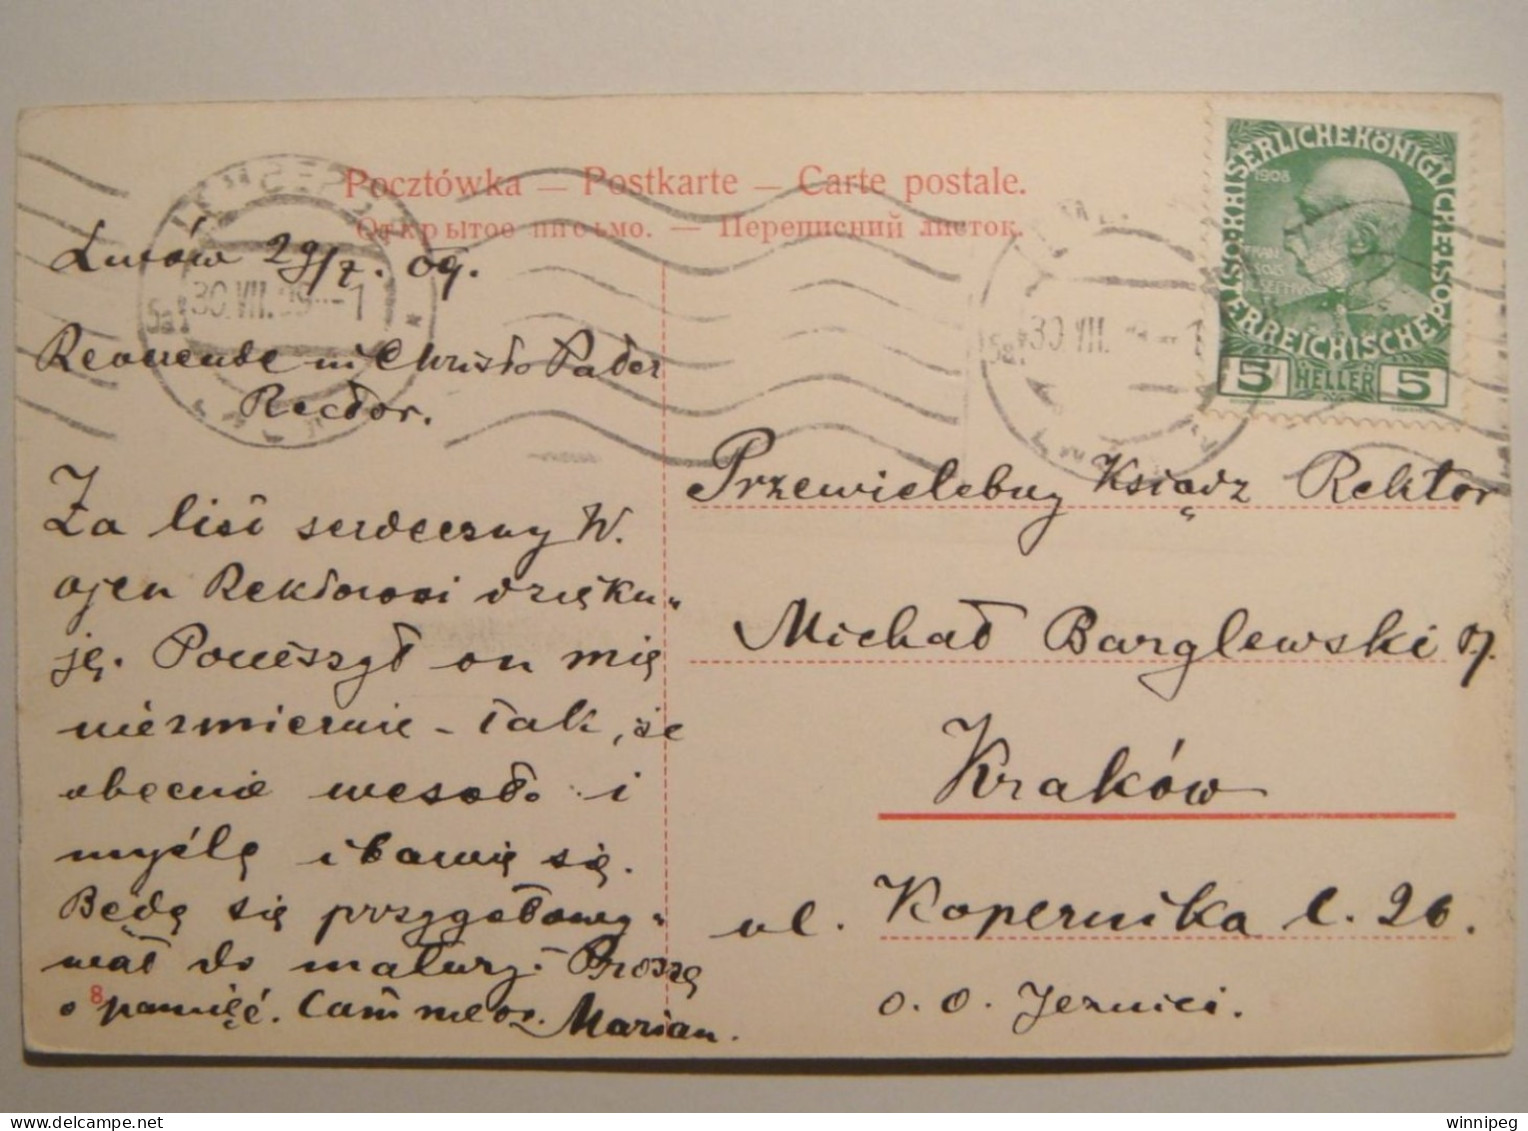 Pocztówka — Postkarte — Carte postale.
Открытое письмо. — Переписний листок.
Lwów 29/7. 09.
30.VII.09 - 1
5a
30 VII. 1
5a
KAISERLICHE KÖNIGLICHE ÖSTERREICHISCHE POST
1908
5 HELLER 5
Reverende in Christo Pater
Rector.
Za list serdeczny W.
ojcu Rektorowi dzięku-
ję. Pocieszył on mię
niezmiernie - tak, że
obecnie wesoło i
myślę i bawię się.
Będę się przygotowy-
wał do matury. Proszę
o pamięć.
Marian.
8
Przewielebny Ksiądz Rektor
Michał Barglewski
Kraków
ul. Kopernika l. 26.
o. o. Jezuici.
winnipeg